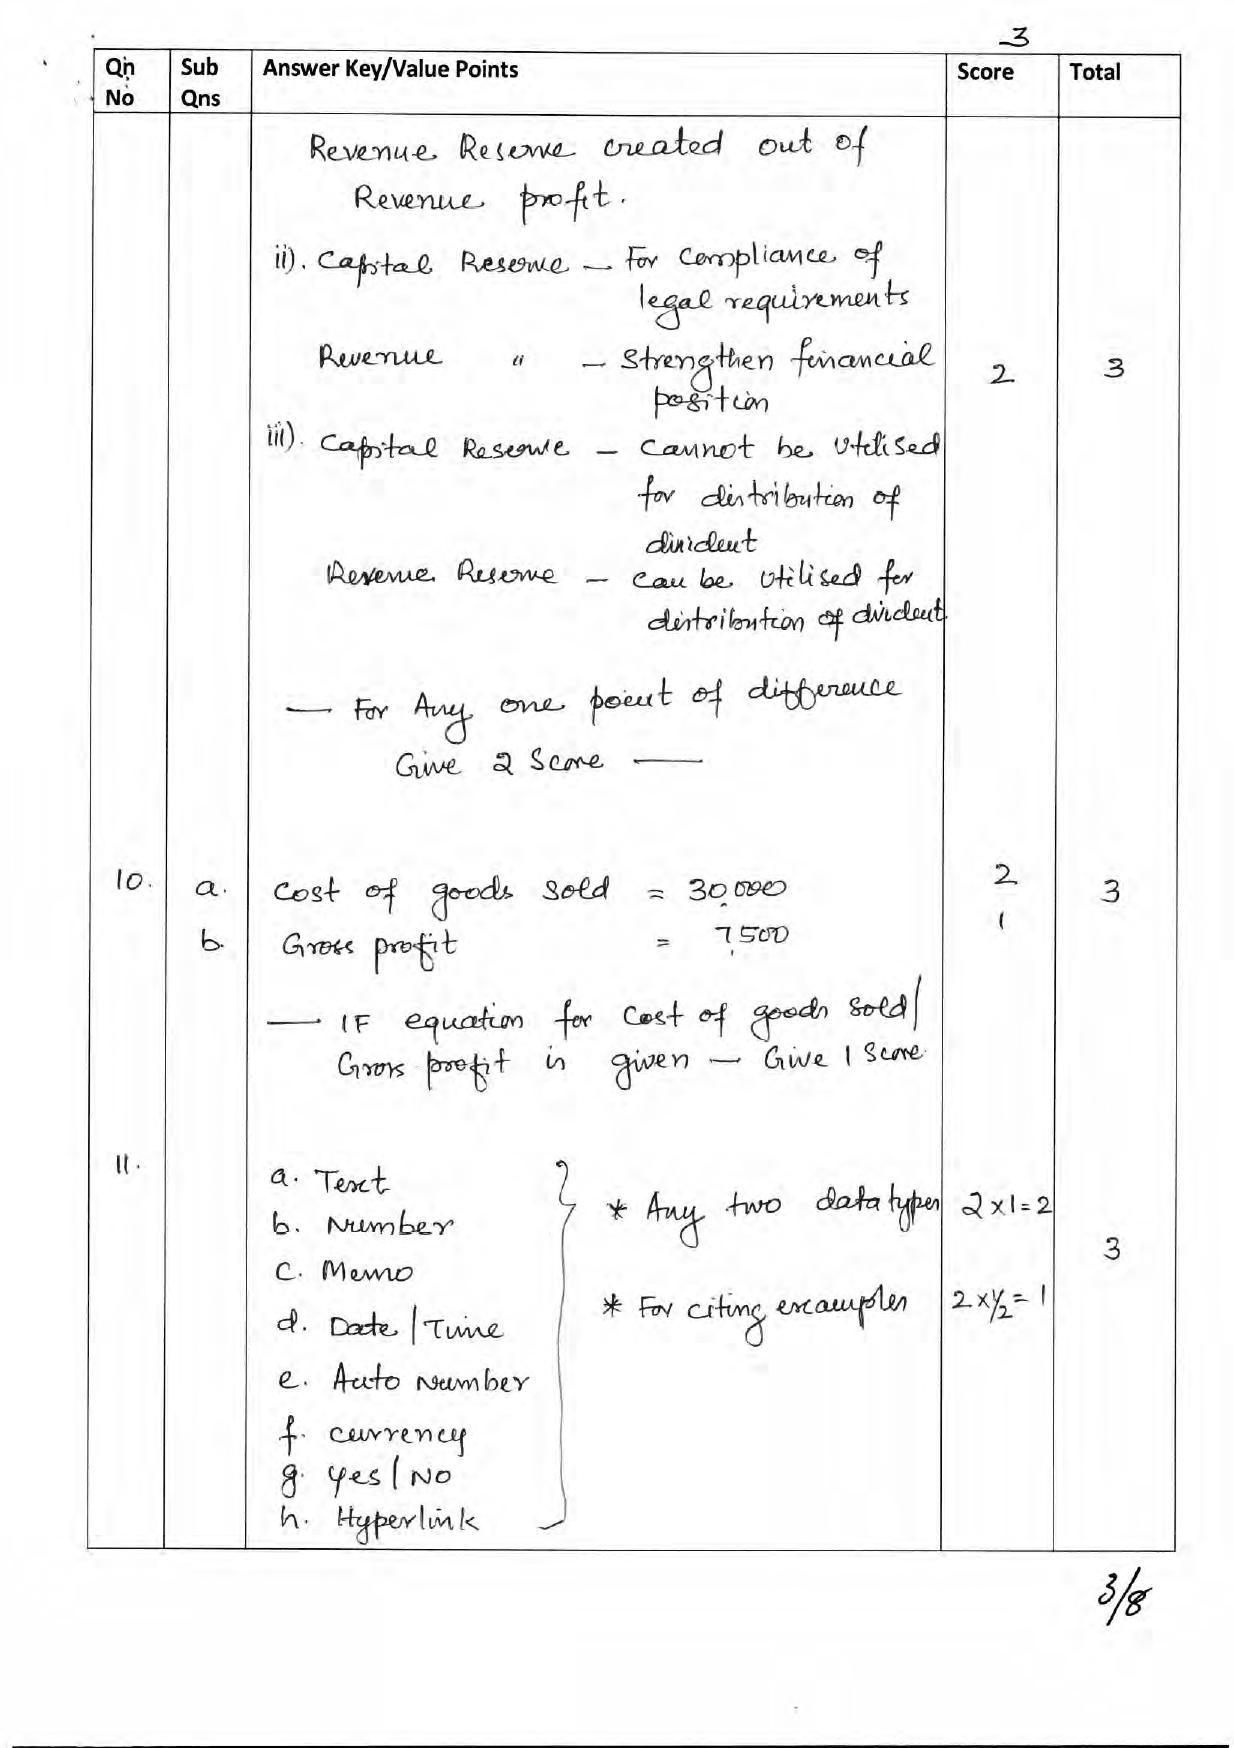 3
Qn No Sub Qns Answer Key/Value Points Score Total
Revenue Reserve created out of
Revenue profit.
ii). Capital Reserve – For compliance of
legal requirements
Revenue " – Strengthen financial
position 2 3
iii). Capital Reserve – Cannot be Utilised
for distribution of
divident
Revenue Reserve – can be Utilised for
distribution of divident
— For Any one point of difference
Give 2 Score —
10. a. Cost of goods sold = 30,000 2 3
b. Gross profit = 7,500 1
— IF equation for Cost of goods sold/
Gross profit is given – Give 1 Score
11.
a. Text
b. Number * Any two data types 2 x 1 = 2
c. Memo 3
d. Date/Time * For citing examples 2 x ½ = 1
e. Auto Number
f. Currency
g. Yes/No
h. Hyperlink
3/8